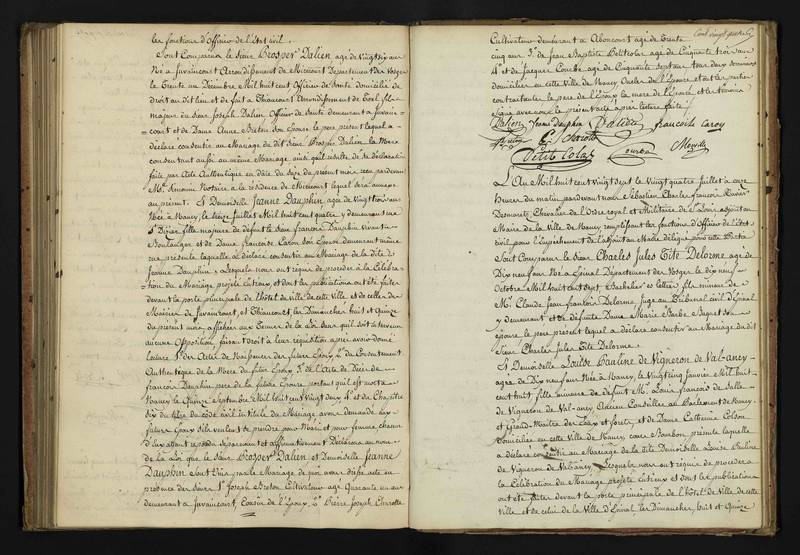 les fonctions d'Officier de l'état civil.
Sont Comparus le Sieur Prosper Dalien agé de vingt dix ans
Né a Juvaincourt Arrondissement de Mirecourt Département des Vosges
le trente un Décembre Mil huit cent Officier de Santé domicilié de
droit au dit lieu et de fait a Thiaucourt Arrondissement de Toul fils
majeur du Sieur Joseph Dalien Officier de Santé demeurant a Juvain-
court et de Dame Anne Breton son Epouse le pere present lequel a
déclaré consentir au Mariage du dit Sieur Prosper Dalien la Mere
consentant aussi au même Mariage ainsi qu'il résulte de sa déclaration
faite par acte Authentique en date du seize du present mois reçu pardevant
Me Simonin Notaire a la résidence de Mirecourt lequel sera annexé
au présent. Et Demoiselle Jeanne Dauphin agée de vingt trois ans
Née a Nancy, le treize Juillet Mil huit cent quatre y demeurant rue
St Dizier fille majeure de défunt le Sieur François Dauphin vivant
Boulanger et de Dame Françoise Caron son Epouse demeurant même
rue présente laquelle a déclaré consentir au Mariage de la dite
Jeanne Dauphin. Lesquels nous ont requis de procéder a la Célébra-
tion du Mariage projeté entr'eux, et dont les publications ont été faites
devant la porte principale de l'hôtel de ville de cette Ville et de celles des
Mairies de Juvaincourt, et Thiaucourt, les Dimanches huit et Quinze
du présent mois affichées aux termes de la Loi sans qu'il soit intervenu
aucune Opposition, faisant droit a leur réquisition après avoir donné
lecture 1º des Actes de Naissance des futurs Epoux 2º du Consentement
Authentique de la Mere du futur Epoux 3º de l'Acte de Décès de
François Dauphin pere de la future Epouse portant qu'il est mort a
Nancy le Quinze Septembre Mil huit cent vingt deux 4º et du Chapitre
six du titre du code civil intitulé du Mariage avons demandé aux
futurs Epoux s'ils veulent se prendre pour Mari et pour femme, chacun
d'eux ayant répondu séparément et affirmativement Déclarons au nom
de la Loi que le Sieur Prosper Dalien et Demoiselle Jeanne
Dauphin sont Unis par le Mariage de quoi avons dressé acte en
présence des Sieurs 1º Joseph Breton Cultivateur agé Quarante un ans
demeurant a Juvaincourt, Cousin de l'Epoux, 2º Pierre Joseph Charotte
Cultivateur demeurant a Aboncourt agé de trente
cinq ans 3º de Jean Baptiste Petitcolas agé de Cinquante trois ans
4º et de Jacques Courba agé de Cinquante sept ans tous deux
domiciliés en cette Ville de Nancy Oncles de l'Epouse et ont les parties
contractantes le pere de l'Epoux la mere de l'Epouse et les témoins
signé avec nous le présent acte après lecture faite.
Dalien Jeanne Dauphin Dalien françoise Caron
Breton Charotte
Petit Colas Courba
L'An Mil huit cent vingt sept le Vingt quatre Juillet a onze
heures du matin pardevant nous Sébastien Charles François Xavier
Desmarets, Chevalier de l'Ordre royal et Militaire de St Louis adjoint au
Maire de la Ville de Nancy remplissant les fonctions d'Officier de l'état
civil pour l'empêchement de l'adjoint au Maire délégué pour cette Partie
Sont Comparus le Sieur Charles Jules Tite Delorme agé de
Dix neuf ans Né a Epinal Département des Vosges le dix neuf
Octobre Mil huit cent sept, Bachelier es lettres fils mineur de
Mr Claude Jean françois Delorme Juge au Tribunal civil d'Epinal
y demeurant et de défunte Dame Marie Barbe Suguet son
épouse le pere present lequel a déclaré consentir au Mariage du dit
Sieur Charles Jules Tite Delorme.
Et Demoiselle Louise Pauline de Vigneron de Val-ancy
agée de Dix neuf ans Née a Nancy, le Vingt cinq Janvier Mil huit
cent huit fille mineure de défunt Mr Louis François
de Vigneron de Val-ancy Ancien Conseiller au Parlement de Nancy
et Grand-Maître des Eaux et forets, et de Dame Catherine Colson
domiciliée en cette Ville de Nancy, cours Bourbon présente laquelle
a déclaré consentir au Mariage de la dite Demoiselle Louise Pauline
de Vigneron de Valancy. Lesquels nous ont requis de procéder a
la Célébration du Mariage projeté entr'eux et dont les publications
ont été faites devant la porte principale de l'hôtel de Ville de cette
Ville et de celui de la Ville d'Epinal, les Dimanches huit et Quinze